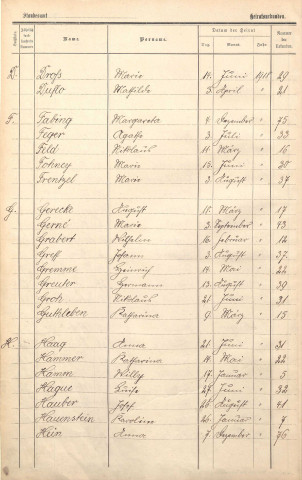 Standesamt Heiratsurkunden
Name Vorname Datum der Heirat Nummer
Tag Monat Jahr
D. Droß Marie 14. Juni 1911 29
Duflo Mathilde 5. April " 21
F. Fabing Margareta 4. Dezember " 75
Feger Agathe 3. Juli " 33
Feld Nikolaus 11. März " 16
Marie 15. Juni " 30
Frentzel Marie 3. August " 37
G. Gerecke August 11. März " 17
Gerné Marie 3. September " 43
Grabert Wilhelm 16. Februar " 12
Greff Johann 3. August " 37.
Gremme Heinrich 14. Mai " 22
Greuter Hermann 13. August " 39
Groh Nikolaus 21. Juni " 31
Guthleben Katharina 9. März " 15
H. Haag Anna 21. Juni " 31
Hammer Katharina 14. Mai " 22
Hamm Willy 17. Januar " 5
Hague Luise 27. Juni " 32
Hauber Josef 26. August " 41
Hauenstein Karoline 26. Januar " 7
Hein Anna 7. Dezember " 76